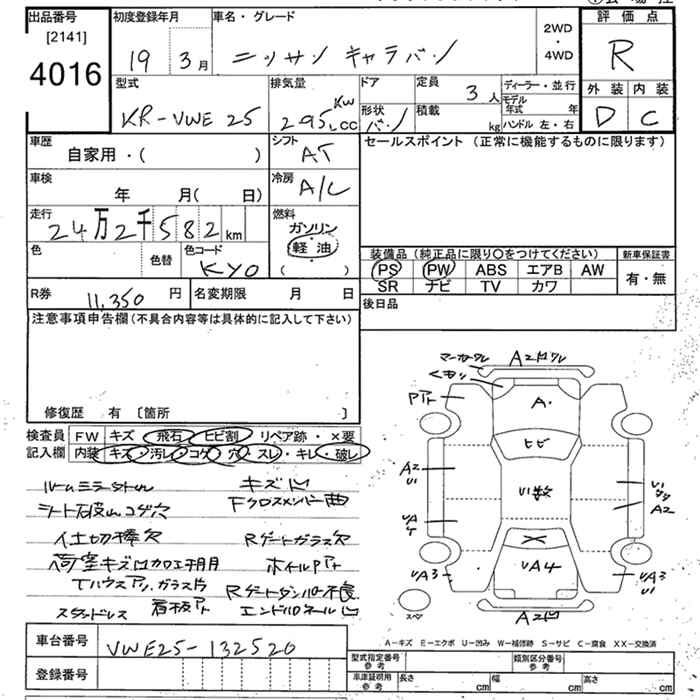 出品番号
[2141]
4016
初度登録年月
19 3月
車名・グレード
ニッサン キャラバン
2WD
・
4WD
評価点
R
外装 内装
D C
型式
KR-VWE25
排気量
KW
295LCC
ドア
形状
バン
定員
3人
積載
kg
ディーラー・並行
モデル年式 年
ハンドル 左・右
車歴
自家用・( )
シフト
AT
セールスポイント (正常に機能するものに限ります)
車検
年 月(日)
冷房
A/C
走行
24万2千582km
燃料
ガソリン
軽油
( )
色
色替
色コード
KY0
装備品 (純正品に限り○をつけてください)
PS PW ABS エアB AW
SR ナビ TV カワ
新車保証書
有・無
R券 11,350 円
名変期限 月 日
後日品
注意事項申告欄(不具合内容等は具体的に記入して下さい)
修復歴 有 [箇所 ]
検査員
記入欄
FW キズ・飛石・ヒビ割・リペア跡・×要
内装 キズ・汚レ・コゲ・穴・スレ・キレ・破レ
ルームミラー
シート破れコゲ穴
仕切棒欠
荷室キズ凹加工
ガラス
看板アト
スタッドレス
キズ凹
Fクロスメンバー曲
Rゲートガラス欠
ホイルPアト
Rゲートダンパー不良
エンドパネル凹
A2凹ワレ
Pアト
A・
ヒビ
A2
U1
U1数
U1
A2
UA
UA3
UA4
UA3
U1
スペ
A2凹
A-キズ E-エクボ U-凹み W-補修跡 S-サビ C-腐食 XX-交換済
車台番号 VWE25-132520
登録番号
型式指定番号
参考
類別区分番号
参考
車庫証明用
参考
長さ cm 幅 cm 高さ cm